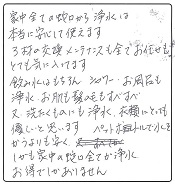 家中全ての蛇口から浄水は
本当に安心して使えます
3ヶ月の交換メンテナンスも全てお任せも
とても気に入ってます
飲み水はもちろん シャワー お風呂も
浄水 お肌も髪の毛もすべすべ
又 洗たくものにも浄水 衣類にとっても
優しいと思います ペットボトルで水を
かうよりも安く
しかも家中の蛇口全てが浄水
お得でしかありません